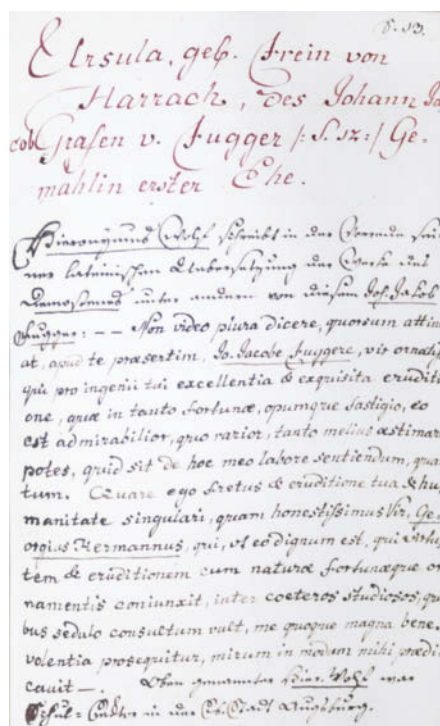 S. 13.
Ursula, geb. Frein von
Harrach, des Johann Ja
cob Grafen v. Fugger /: S. 12 :/ Ge-
mahlin erster Ehe.
Hieronymus Wolf schreibt in der Vorrede sei
ner lateinischen Uebersetzung der Werke des
Demostenes unter andern von diesem Joh. Jakob
Fugger: -- Non video plura dicere, quorsum attin
at, apud te præsertim, Jo. Jacobe Fuggere, vir ornatiss
qui pro ingenii tui excellentia & exquisita eruditi
one, quæ in tanto fortunæ, opumque fastigio, eo
est admirabilior, quo rarior, tanto melius æstimar
potes, quid sit de hoc meo labore sentiendum, qua
tum. Quare ego fretus & eruditione tua & hu
manitate singulari, quam honestissimus Vir, Ge
orgius Hermannus, qui, ut eo dignum est, qui virtu
tem & eruditionem cum naturæ fortunæque or
namentis coniunxit, inter coeteros studiosos, qui
bus sedulo consultum vult, me quoque magna bene
volentia prosequitur, mirum in modum mihi prædi
cavit —. Oben genannter Hier. Wolf war
Schul= in der Stadt Augsburg.